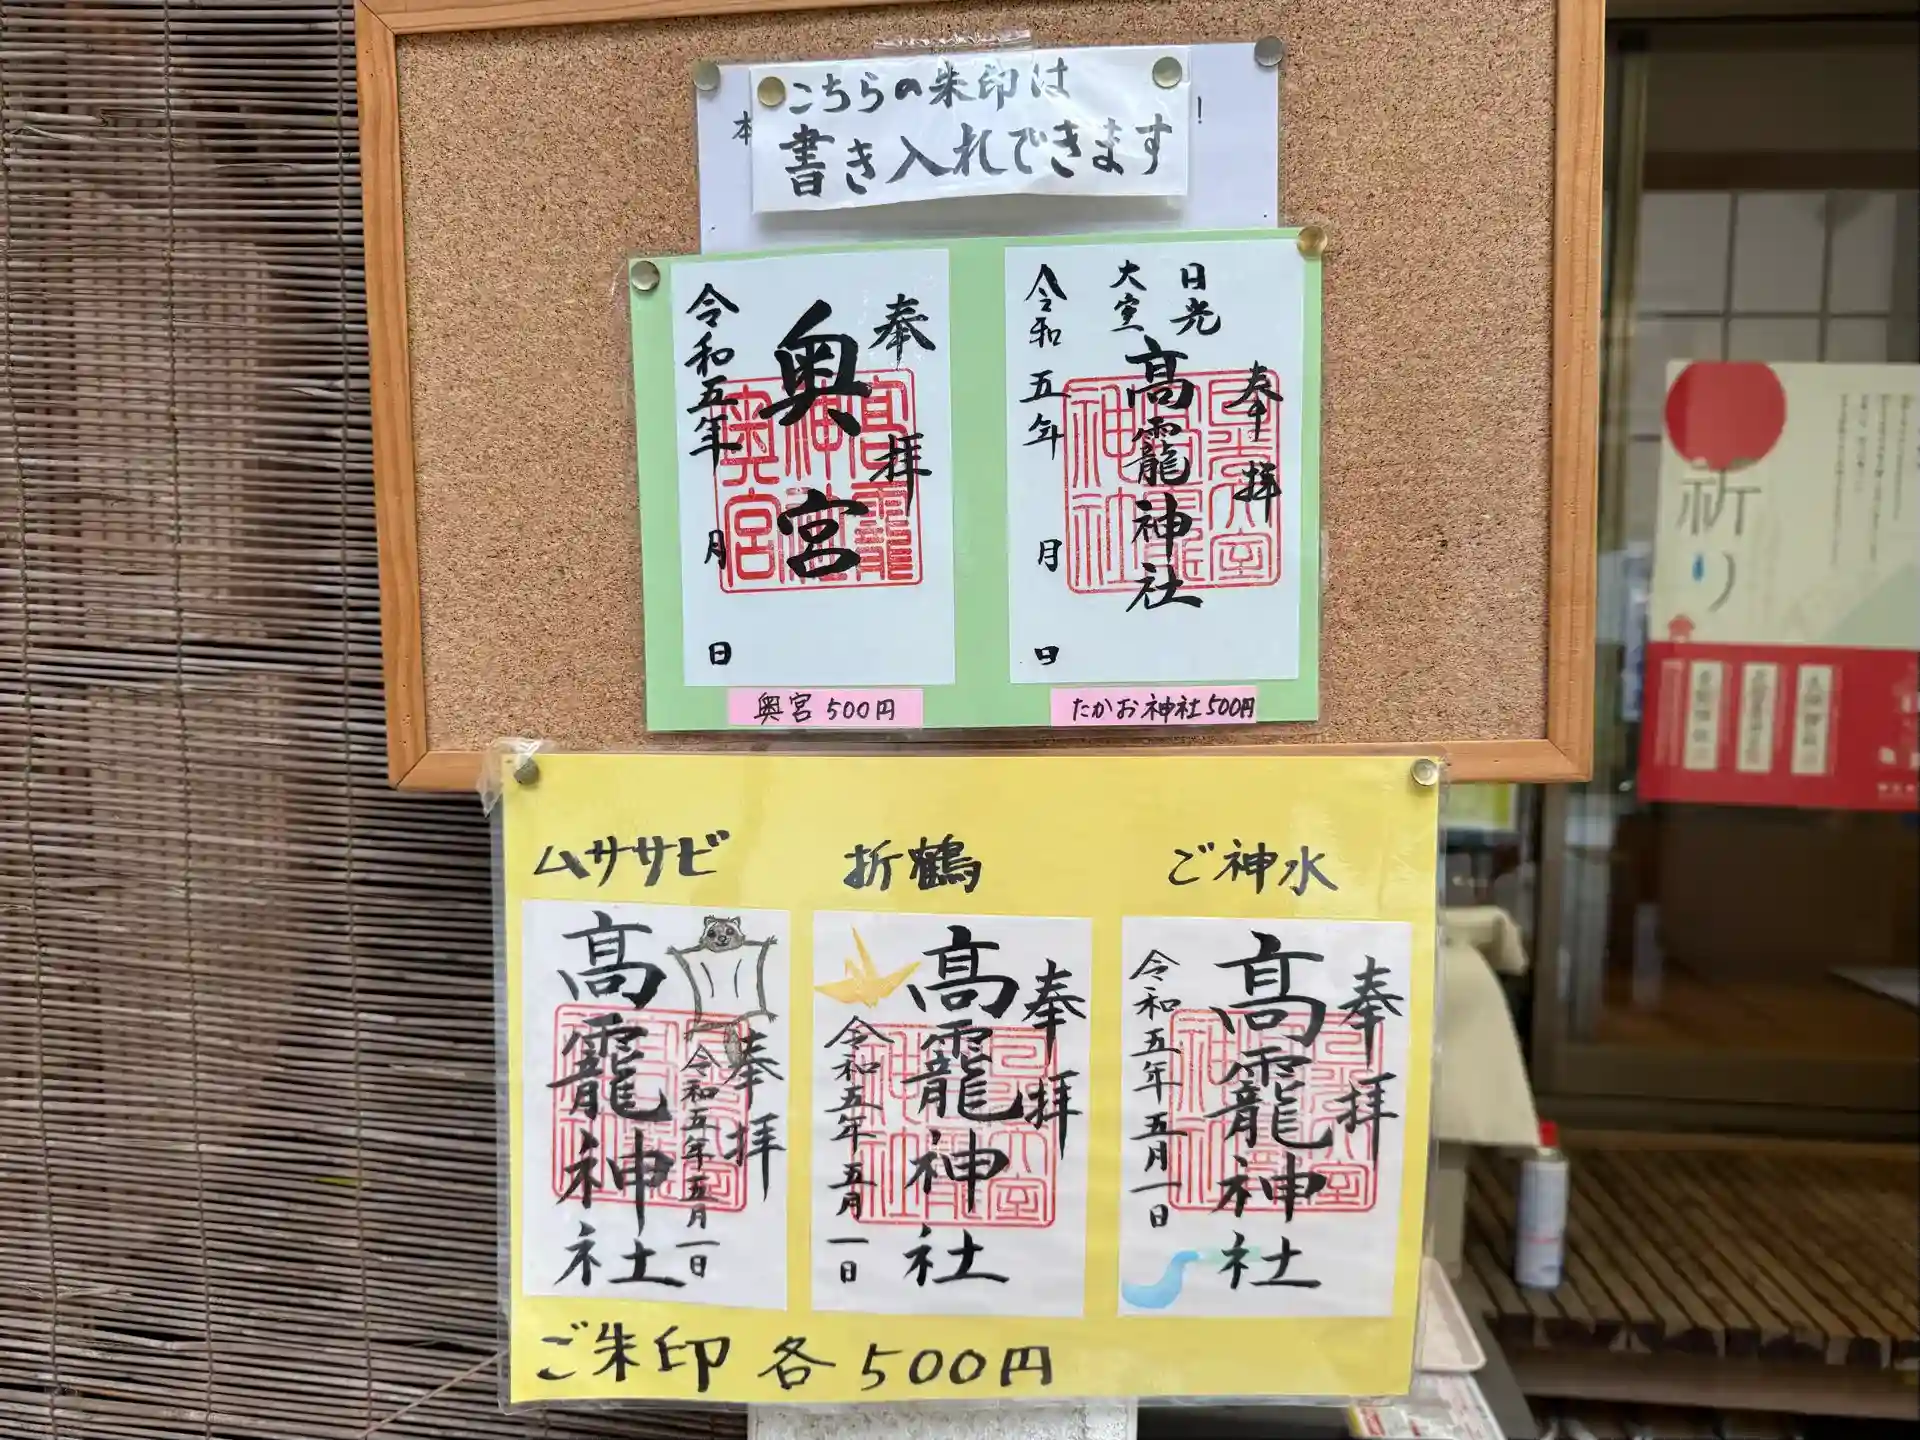 こちらの朱印は
書き入れできます
本
!
奉拝
奥宮
令和五年 月 日
高龗神社奥宮
奥宮 500円
日光
大室
奉拝
高龗神社
令和五年 月 日
たかお神社 500円
ムササビ
奉拝
令和五年五月一日
高龗神社
折鶴
奉拝
高龗神社
令和五年五月一日
ご神水
奉拝
高龗神社
令和五年五月一日
ご朱印 各500円
祈り